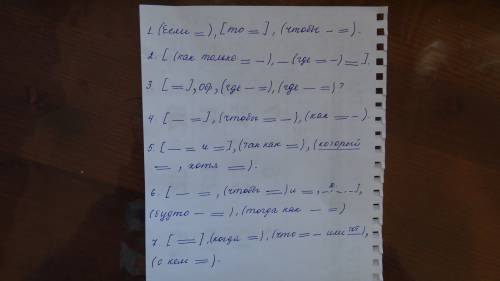 1. (Если =), [то =], (чтобы – =).
2. [ (как только = –), – (где = –) = ].
3. [ = ], обр, (где – =), (где – =)?
4. [ – = ], (чтобы = –), (как = –).
5. [ – = и = ], (так как =), (который
= , хотя = ).
6. [ – = , (чтобы =) и = ,
(будто – =), (тогда как – =)
7. [ = ], (когда =), (что = – или
(о ком =).